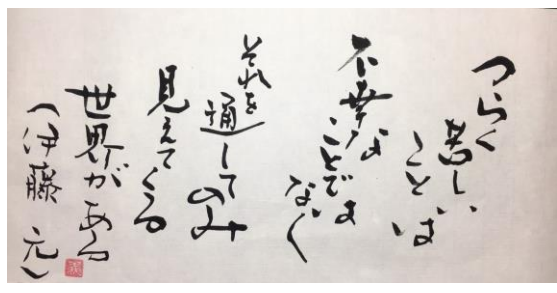 つらく
苦しい
ことは
不幸な
ことでは
なく
それを
通して
のみ
見えてくる
世界がある
(伊藤 元)